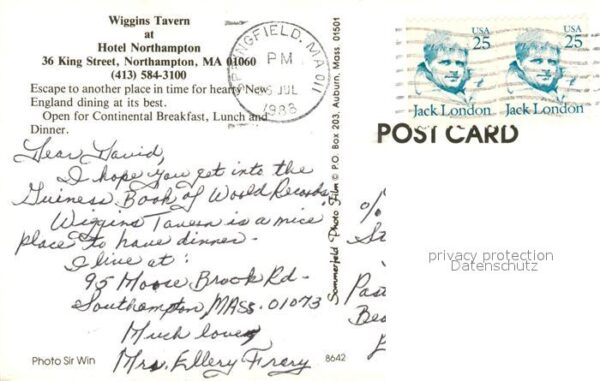 Wiggins Tavern
at
Hotel Northampton
36 King Street, Northampton, MA 01060
(413) 584-3100
Escape to another place in time for hearty New
England dining at its best.
Open for Continental Breakfast, Lunch and
Dinner.
Dear David,
I hope you get into the
Guiness Book of World Records.
Wiggins Tavern is a nice
place to have dinner.
I live at:
95 Moose Brook Rd.
Southampton, MASS. 01073
Much love,
Mrs. Ellery Frary
Photo Sir Win
8642
Sommerfeld Photo Film © P.O. Box 203, Auburn, Mass. 01501
SPRINGFIELD, MA 011
PM
JUL
1988
USA
25
Jack London
USA
25
Jack London
POST CARD
%
privacy protection
Datenschutz